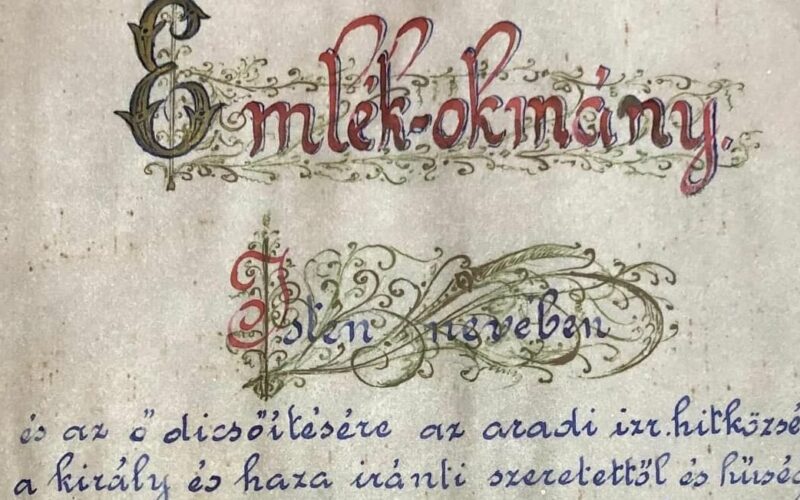 Emlék-okmány.
Isten nevében
és az ő dicsőítésére az aradi izr. hitközsé
a király és haza iránti szeretettől és hűség